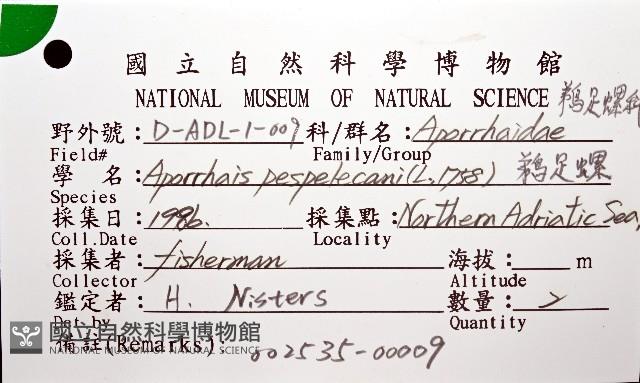 國立自然科學博物館
NATIONAL MUSEUM OF NATURAL SCIENCE 鵜足螺科
野外號:D-ADL-1-009 科/群名:Aporrhaidae
Field# Family/Group
學 名:Aporrhais pespelecani(L.1758) 鵜足螺
Species
採集日:1986. 採集點:Northern Adriatic Sea,
Coll.Date Locality
採集者:fisherman 海拔: m
Collector Altitude
鑑定者:H. Nisters 數量:2
Det.by Quantity
國立自然科學博物館
NATIONAL MUSEUM OF NATURAL SCIENCE
備註(Remarks): 002535-00009